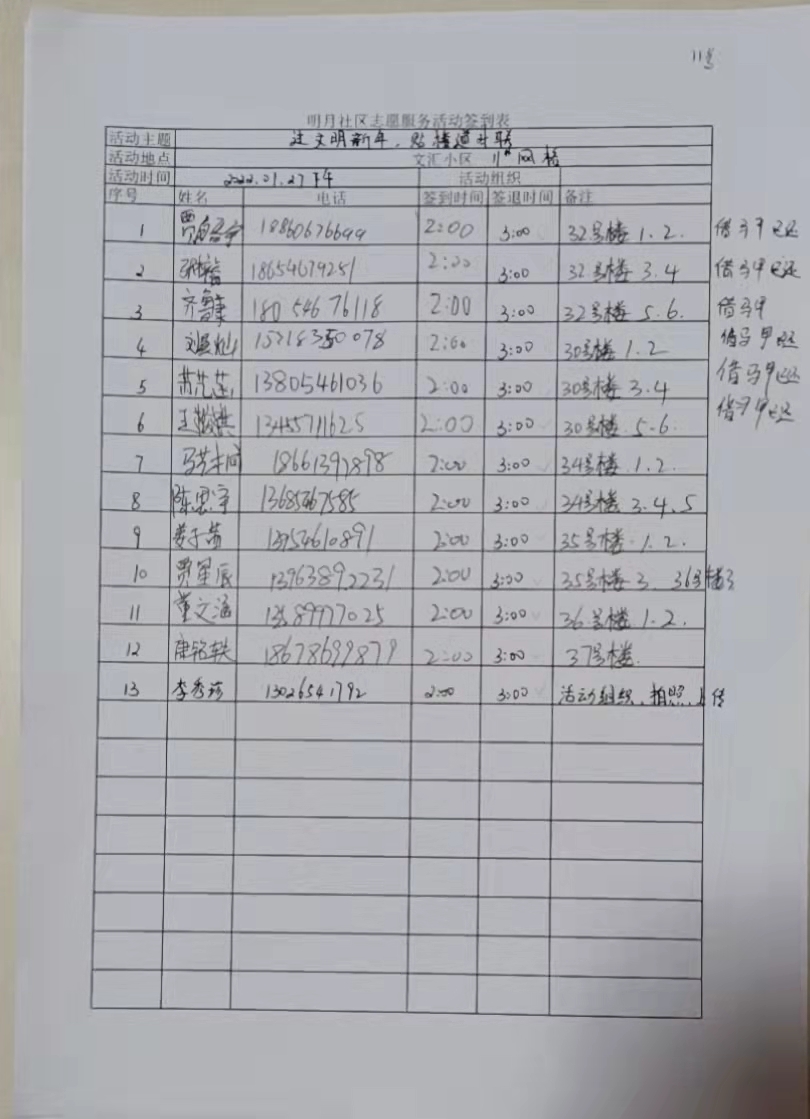 11号
明月社区志愿服务活动签到表
活动主题 过文明新年，贴楼道对联
活动地点 文汇小区 11#网格
活动时间 2022.01.27下午 活动组织
序号 姓名 电话 签到时间 签退时间 备注
1 18860676699 2:00 3:00 32号楼 1.2. 借马甲已还
2 18654679251 2:00 3:00 32号楼 3.4 借马甲已还
3 齐鲁豫 18054676118 2:00 3:00 32号楼 5.6. 借马甲
4 2:00 3:00 30号楼 1.2 借马甲已还
5 13805461036 2:00 3:00 30号楼 3.4 借马甲已还
6 13455711625 2:00 3:00 30号楼 5-6. 借马甲已还
7 18661397898 2:00 3:00 34号楼 1.2.
8 陈思宇 13685467585 2:00 3:00 34号楼 3.4.5
9 姜子茜 13954610891 2:00 3:00 35号楼 1.2.
10 贾星辰 13963892231 2:00 3:00 35号楼 3. 36号楼3
11 董文涵 13589977025 2:00 3:00 36号楼 1.2.
12 唐铭轶 18678699879 2:00 3:00 37号楼.
13 李秀珍 13026541792 2:00 3:00 活动组织，拍照，上传